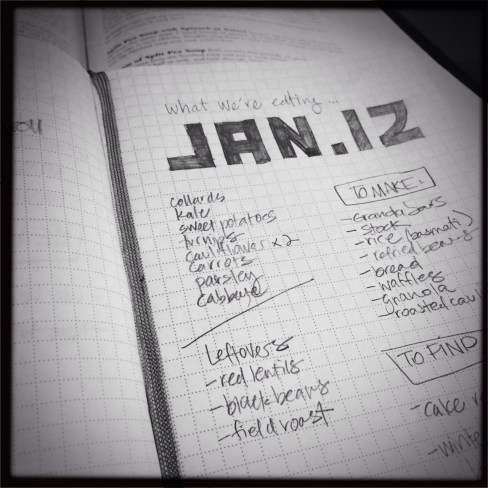 Split Pea Soup with Spinach
of Split Pea Soup
what we're eating...
JAN.12
collards
kale
sweet potatoes
turnips
cauliflower x2
carrots
parsley
cabbage
Leftovers
-red lentils
-black beans
-field roast
TO MAKE:
-Granola bars
-stock
-rice (basmati)
-refried beans
-bread
-waffles
-granola
-roasted caul
TO FIND
-cake
-winte